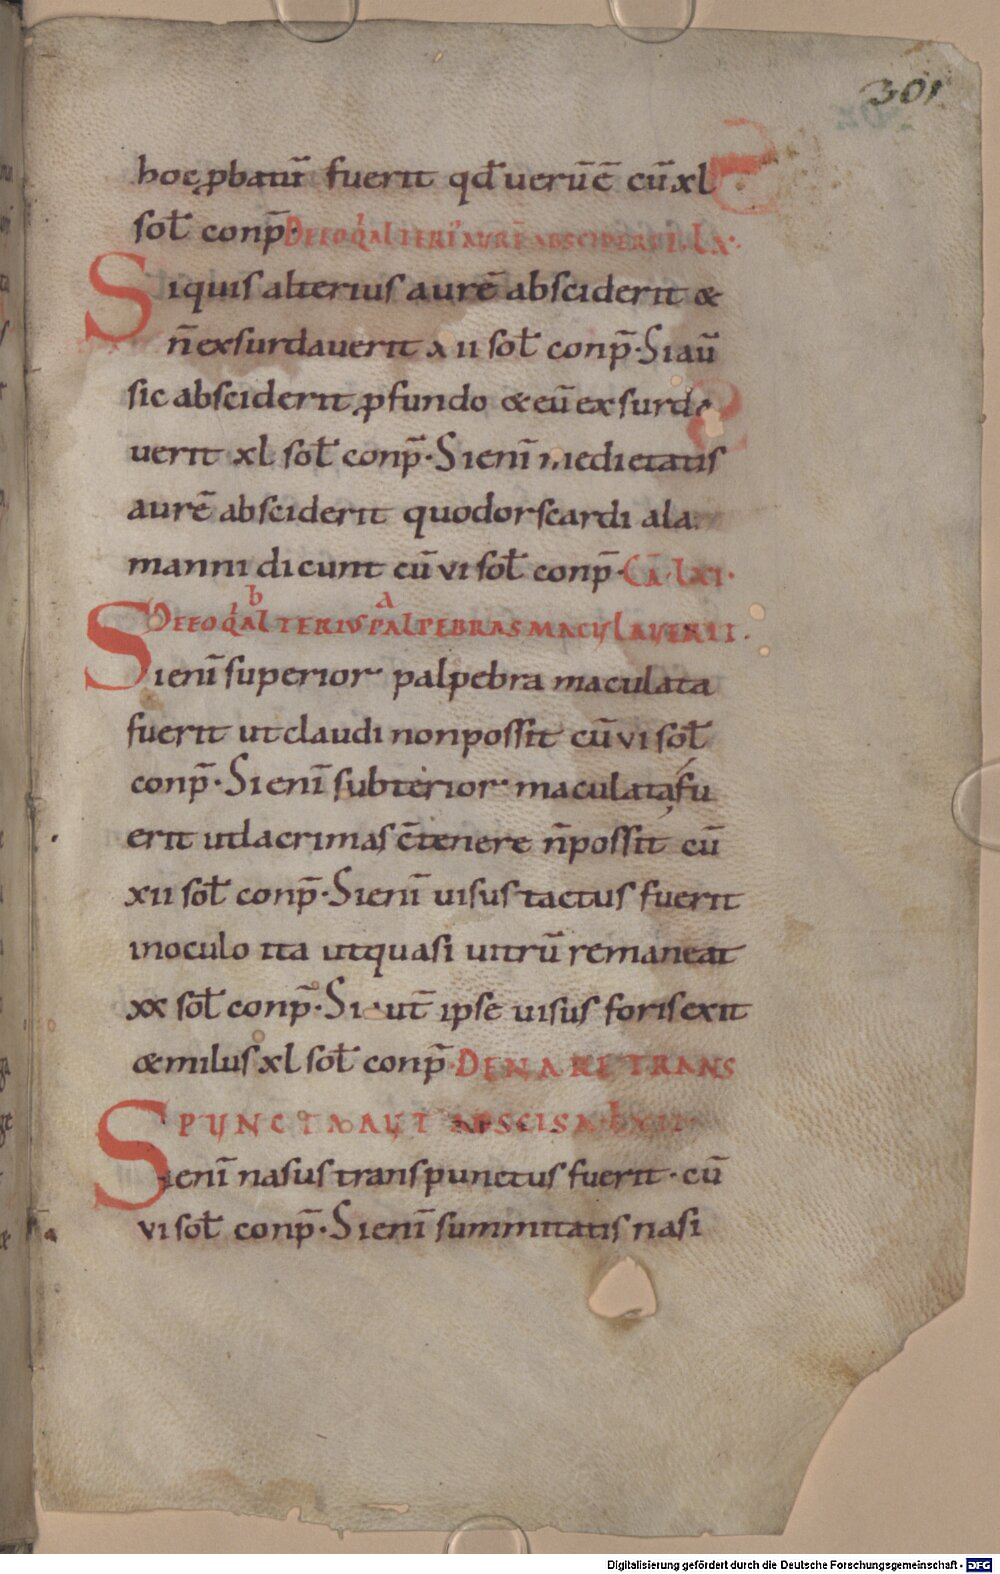 301
hoc ꝓbatū fuerit qđ uerū ē cū xl
soł conp̄· DE EO Q̇ ALTERI' AURĒ ABSCIDERIT. LX·
Siquis alterius aurē absciderit &
n̄ exsurdauerit xii soł conp̄· Si aū
sic absciderit ꝓfundo & eū exsurda
uerit xl soł conp̄· Si enī medietatis
aurē absciderit quod orscardi ala
manni dicunt cū vi soł conp̄· CĀ· LXI·
DE EO Q̇ ALTERIUS PALPEBRAS MACULAUERIT·
Si enī superior palpebra maculata
fuerit ut claudi non possit cū vi soł
conp̄· Si enī subterior maculata fu
erit ut lacrimas c̄tenere n̄ possit cū
xii soł conp̄· Si enī uisus tactus fuerit
in oculo ita ut quasi uitrū remaneat
xx soł conp̄· Si ut̄ ipse uisus foris exit
& milus xl soł conp̄· DE NARE TRANS
PUNCTA AUT ABSCISA· LXII
Si enī nasus transpunctus fuerit· cū
vi soł conp̄· Si enī summitatis nasi
Digitalisierung gefördert durch die Deutsche Forschungsgemeinschaft - DFG